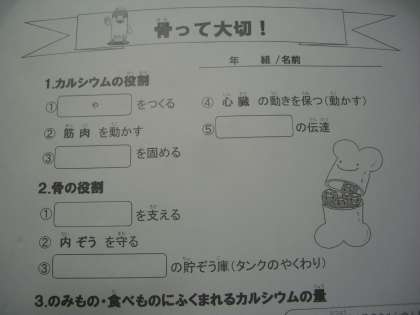 骨って大切！
年 組/名前
1.カルシウムの役割
① や をつくる
② 筋肉を動かす
③ を固める
④ 心臓 の動きを保つ(動かす)
⑤ の伝達
2.骨の役割
① を支える
② 内ぞう を守る
③ の貯ぞう庫(タンクのやくわり)
3.のみもの・食べものにふくまれるカルシウムの量